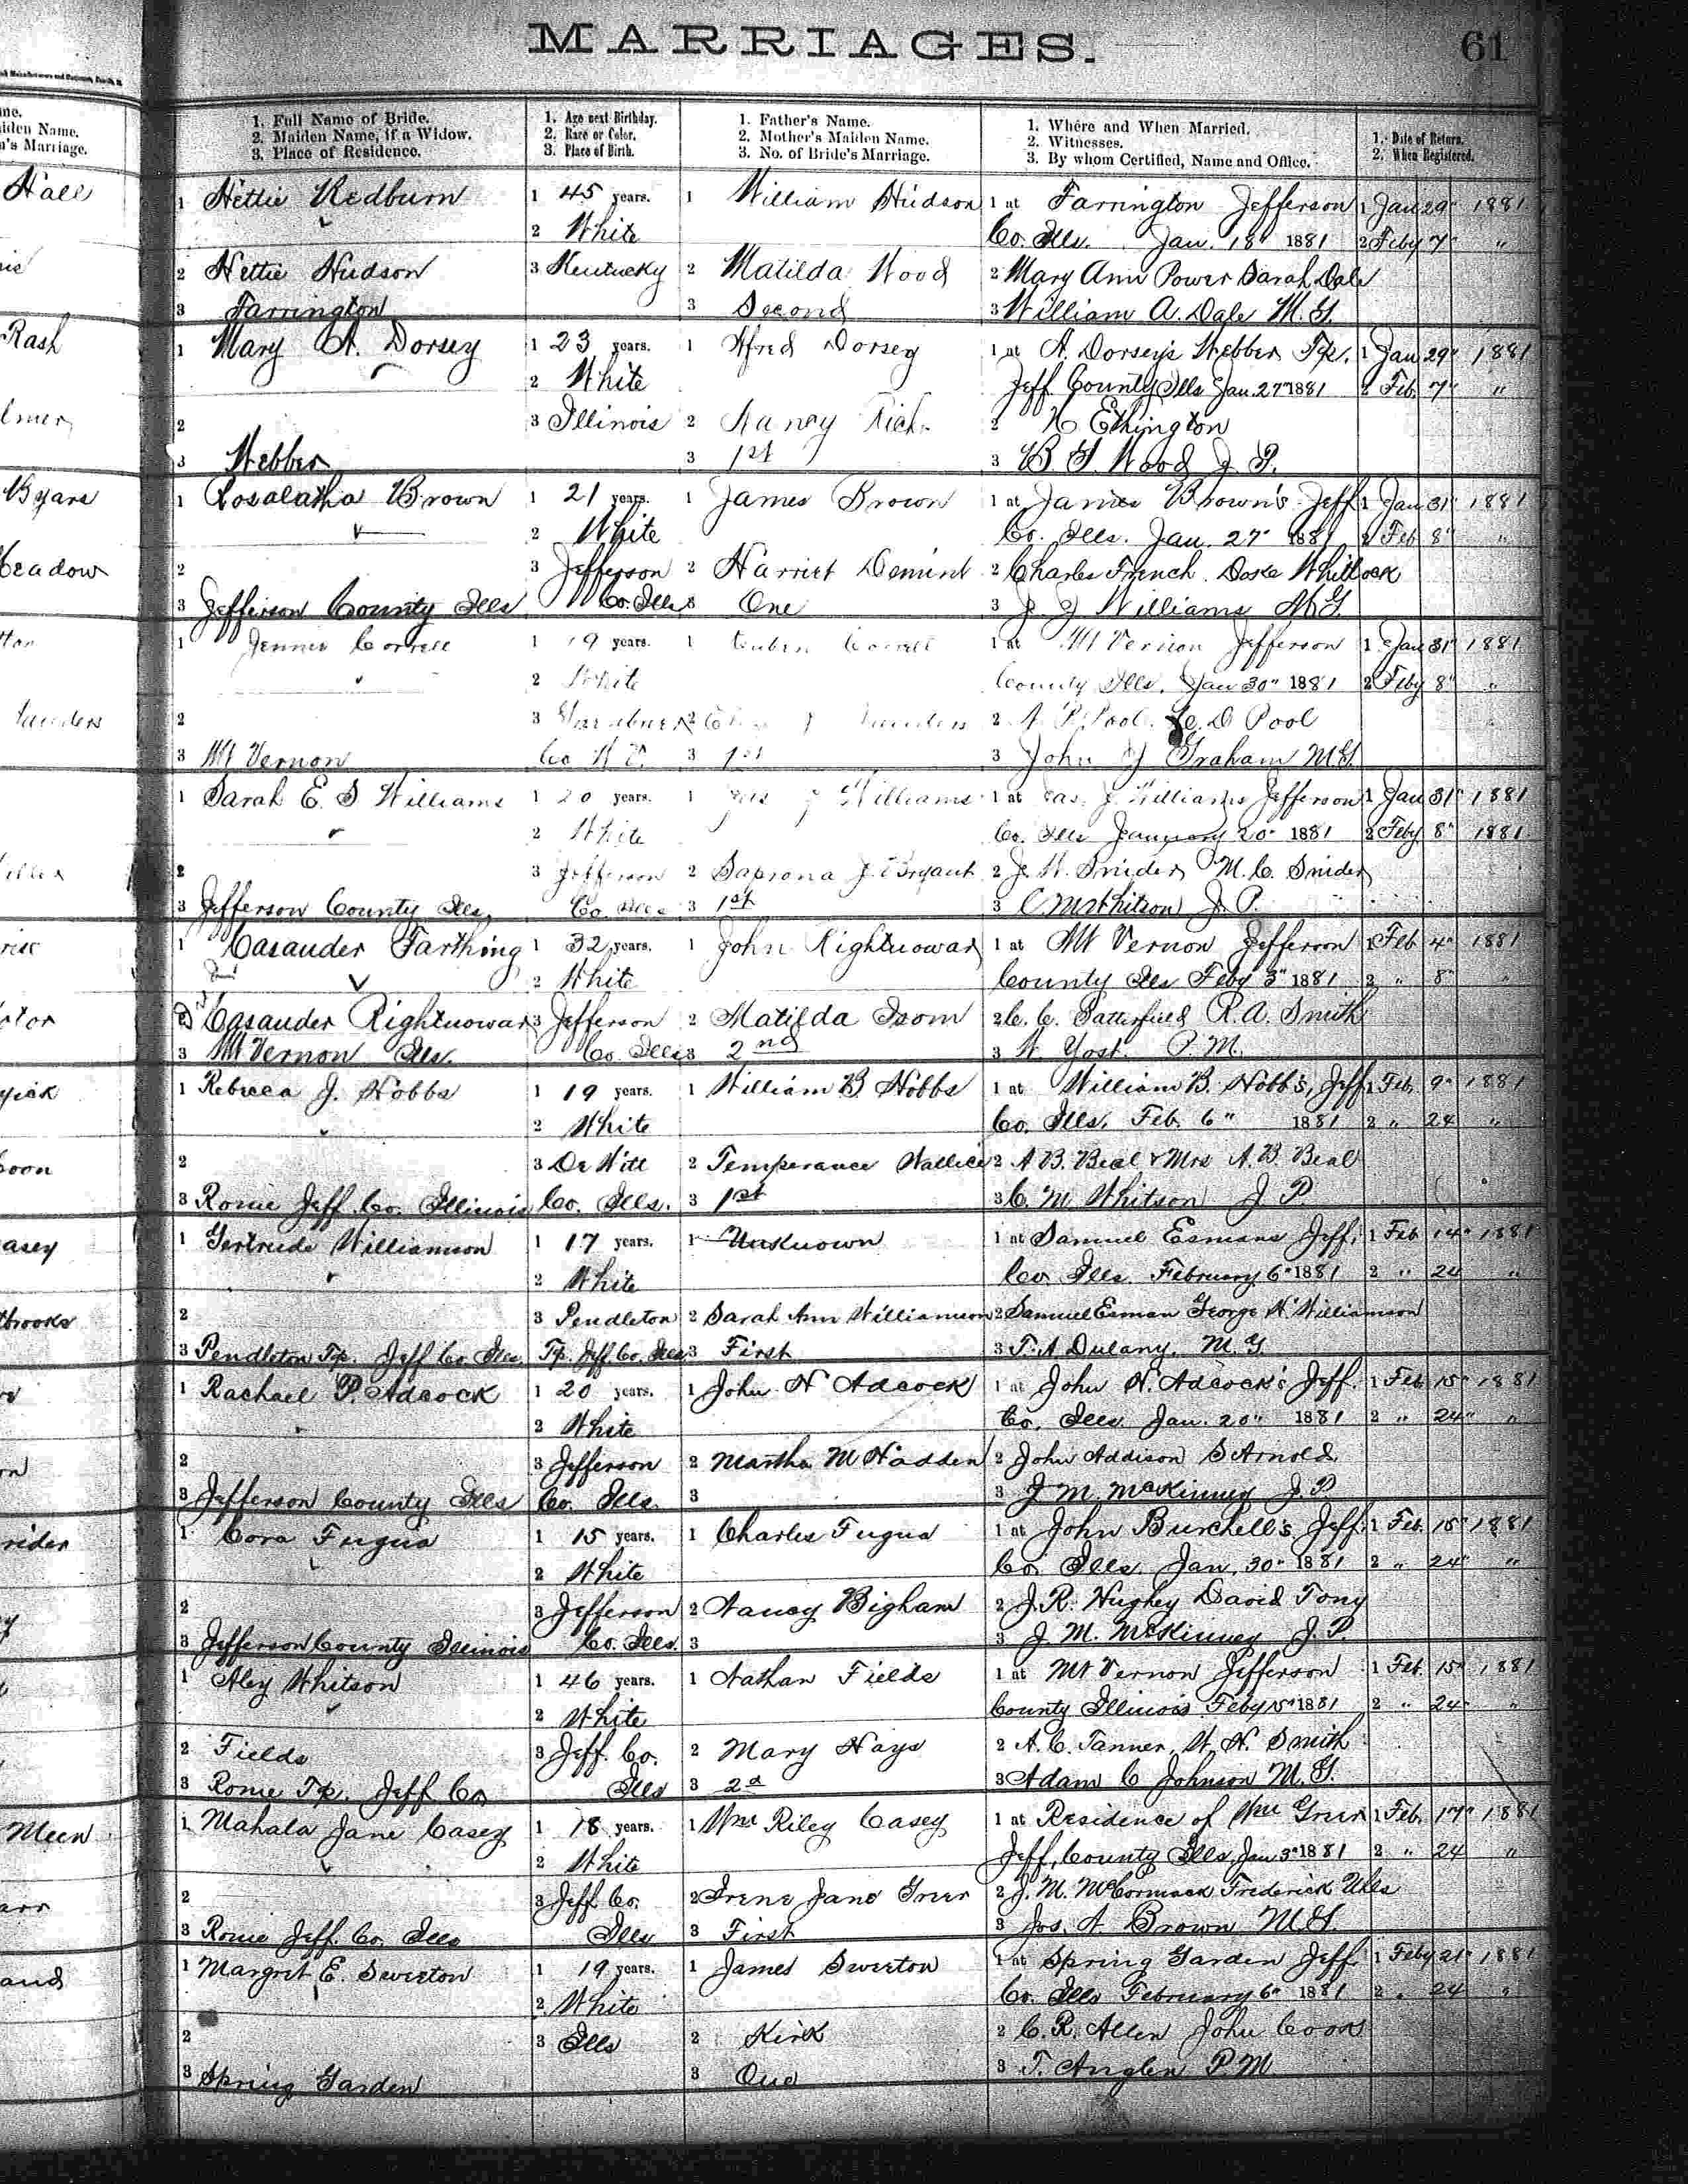 MARRIAGES.
61
1. Full Name of Bride.
2. Maiden Name, if a Widow.
3. Place of Residence.
1. Age next Birthday.
2. Race or Color.
3. Place of Birth.
1. Father's Name.
2. Mother's Maiden Name.
3. No. of Bride's Marriage.
1. Where and When Married.
2. Witnesses.
3. By whom Certified, Name and Office.
1. Date of Return.
2. When Registered.
1 Hettie Redburn 1 45 years. 1 William Hudson 1 at Farrington Jefferson 1 Jan 29" 1881
2 White Co. Ills. Jan. 18" 1881 2 Feby 7" "
2 Hettie Hudson 3 Kentucky 2 Matilda Wood 2 Mary Ann Power Sarah Dale
3 Farrington 3 Second 3 William A. Dale M.G.
1 Mary A. Dorsey 1 23 years. 1 Dorsey 1 at A. Dorsey's Webber Tp. 1 Jan 29" 1881
2 White Jeff. County Ills Jan. 27" 1881 2 Feb. 7" "
2 3 Illinois 2 Nancy 2 Ethington
3 Webber 3 1st 3 Wood J. P.
1 Rosalatha Brown 1 21 years. 1 James Brown 1 at James Brown's Jeff 1 Jan 31" 1881
2 White Co. Ills. Jan. 27" 1881 2 Feb 8" "
2 3 Jefferson 2 Harriet 2 Charles French
3 Jefferson County Ills Co. Ills 3 One 3 J. J Williams M.G.
1 Jennie Correll 1 19 years. 1 Correll 1 at Mt Vernon Jefferson 1 Jan 31" 1881
2 White County Ills. Jan 30" 1881 2 Feby 8" "
2 3 2 2 Pool. D Pool
3 Mt Vernon Co 3 1st 3 John J Graham M.G.
1 Sarah E. S Williams 1 20 years. 1 Williams 1 at Jas. J. Williams Jefferson 1 Jan 31" 1881
2 White Co. Ills January 20" 1881 2 Feby 8" 1881
2 3 Jefferson 2 Saprona J. Bryant 2 J. W. Snider M. C. Snider
3 Jefferson County Ills, Co. Ills 3 1st 3 C M Whitson J. P.
1 Casander Farthing 1 32 years. 1 John Rightnowar 1 at Mt Vernon Jefferson 1 Feb 4" 1881
2 White County Ills Feby 3" 1881 2 " 8" "
2 Casander Rightnowar 3 Jefferson 2 Matilda Isom 2 C. C. Satterfield R. A. Smith
3 Mt Vernon Ills. Co. Ills 3 2nd 3 W Yost P. M.
1 Rebecca J. Hobbs 1 19 years. 1 William B Hobbs 1 at William B. Hobb's, Jeff 1 Feb. 9" 1881
2 White Co. Ills. Feb. 6" 1881 2 " 24 "
2 3 De Witt 2 Temperance Wallice 2 A B. Beal & Mrs A. B. Beal
3 Rome Jeff. Co. Illinois Co. Ills. 3 1st 3 C. M Whitson J P.
1 Gertrude Williamson 1 17 years. 1 Unknown 1 at Samuel Esmans Jeff. 1 Feb 14" 1881
2 White Co. Ills. February 6" 1881 2 " 24 "
2 3 Pendleton 2 Sarah Ann Williamson 2 Samuel Esman George W Williamson
3 Pendleton Tp. Jeff Co Ills. Tp. Jeff Co. Ills 3 First 3 T. A Dulany. M. G
1 Rachael P. Adcock 1 20 years. 1 John N Adcock 1 at John N. Adcock's Jeff. 1 Feb 15" 1881
2 White Co. Ills Jan. 20" 1881 2 " 24" "
2 3 Jefferson 2 Martha M Hadden 2 John Addison S Arnold
3 Jefferson County Ills Co. Ills. 3 3 J M. McKinney J. P
1 Cora Fuqua 1 15 years. 1 Charles Fuqua 1 at John Burchell's Jeff. 1 Feb. 15" 1881
2 White Co. Ills. Jan. 30" 1881 2 " 24" "
2 3 Jefferson 2 Nancy Bigham 2 J. R. Hughey David Tony
3 Jefferson County Illinois Co. Ills. 3 3 J. M. McKinney J. P
1 Aley Whitson 1 46 years. 1 Nathan Fields 1 at Mt Vernon Jefferson 1 Feb. 15" 1881
2 White County Illinois Feby 15" 1881 2 " 24" "
2 Fields 3 Jeff. Co. 2 Mary Hays 2 A. C. Tanner, W. H. Smith
3 Rome Tp. Jeff Co Ills 3 2d 3 Adam C Johnson M. G.
1 Mahala Jane Casey 1 18 years. 1 Wm Riley Casey 1 at Residence of Wm Greer 1 Feb. 17" 1881
2 White Jeff. County Ills. Jan 3" 1881 2 " 24 "
2 3 Jeff Co. 2 Irene Jane Greer 2 J. M. McCormack Frederick
3 Rome Jeff. Co. Ills Ills 3 First 3 Jos. A Brown M.G.
1 Margret E. Sweeton 1 19 years. 1 James Sweeton 1 at Spring Garden Jeff. 1 Feby 21" 1881
2 White Co. Ills February 6" 1881 2 " 24 "
2 3 Ills 2 Kirk 2 C. R. Allen John Cook
3 Spring Garden 3 One 3 T. Anglen P. M.